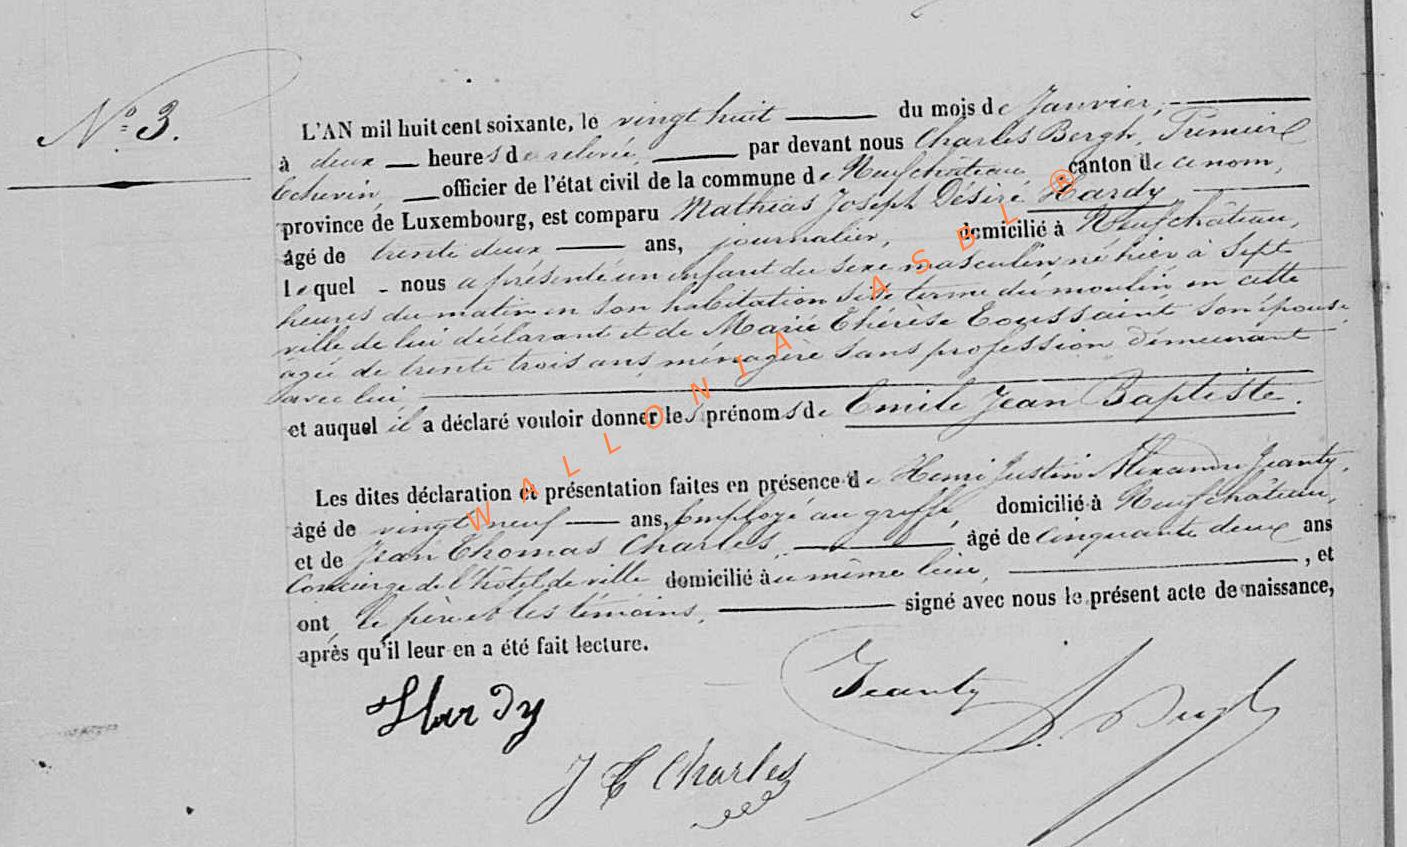 N° 3.
L'AN mil huit cent soixante, le vingt huit du mois de Janvier,
à deux heures de relevée, par devant nous Charles Bergh, Premier
Echevin, officier de l'état civil de la commune de Neufchâteau canton de ce nom,
province de Luxembourg, est comparu Mathias Joseph Désiré Hardy
âgé de trente deux ans, journalier, domicilié à Neufchâteau,
lequel nous a présenté un enfant du sexe masculin né hier à sept
heures du matin en son habitation sise terme du moulin en cette
ville de lui déclarant et de Marie Thérèse Toussaint son épouse
agée de trente trois ans ménagère sans profession demeurant
avec lui
et auquel il a déclaré vouloir donner les prénoms de Emile Jean Baptiste.
Les dites déclaration et présentation faites en présence de Henri Justin Alexandre Jeanty,
âgé de vingt neuf ans, Employé au greffe, domicilié à Neufchâteau,
et de Jean Thomas Charles, âgé de cinquante deux ans
Concierge de l'hôtel de ville domicilié au même lieu, , et
ont le père et les témoins, signé avec nous le présent acte de naissance,
après qu'il leur en a été fait lecture.
Hardy
Jeanty
J T Charles
WALLONIA ASBL ®